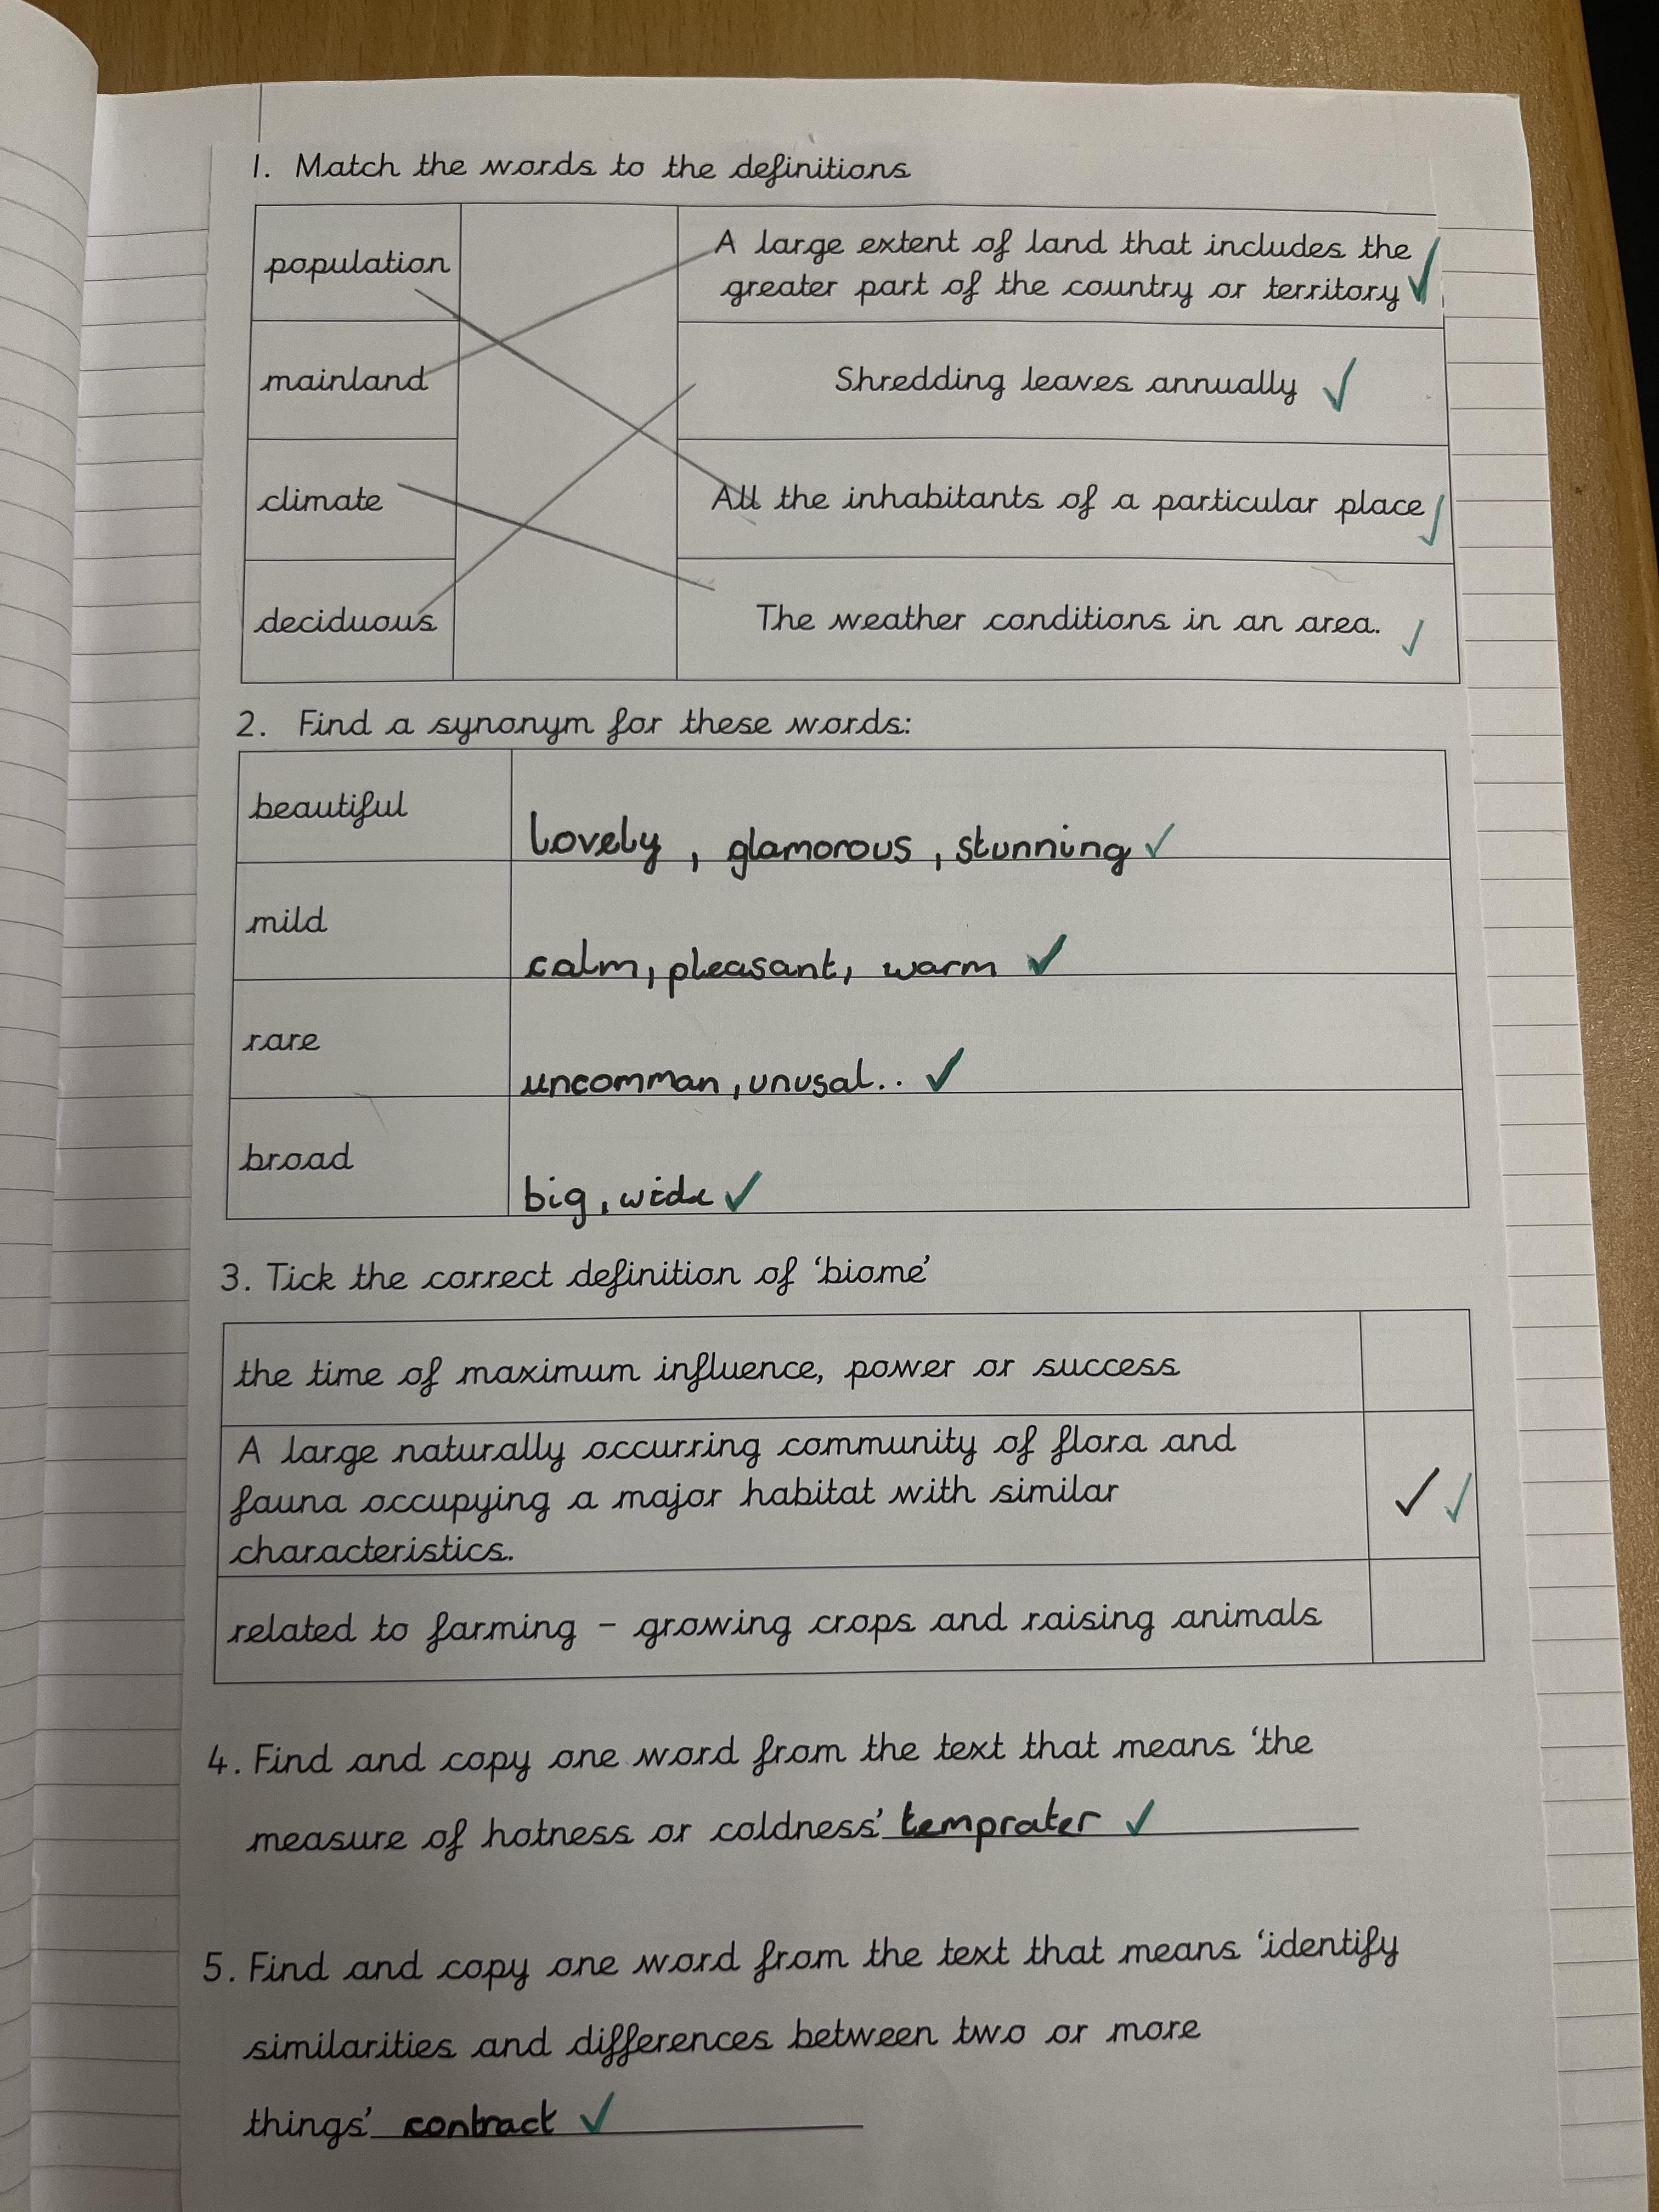 1. Match the words to the definitions
population
A large extent of land that includes the
greater part of the country or territory
mainland
Shredding leaves annually
climate
All the inhabitants of a particular place
deciduous
The weather conditions in an area.
2. Find a synonym for these words:
beautiful
lovely, glamorous, stunning
mild
calm, pleasant, warm
rare
uncomman, unusal..
broad
big, wide
3. Tick the correct definition of ‘biome’
the time of maximum influence, power or success
A large naturally occurring community of flora and
fauna occupying a major habitat with similar
characteristics.
related to farming – growing crops and raising animals
4. Find and copy one word from the text that means ‘the
measure of hotness or coldness’ temprater
5. Find and copy one word from the text that means ‘identify
similarities and differences between two or more
things’ contract